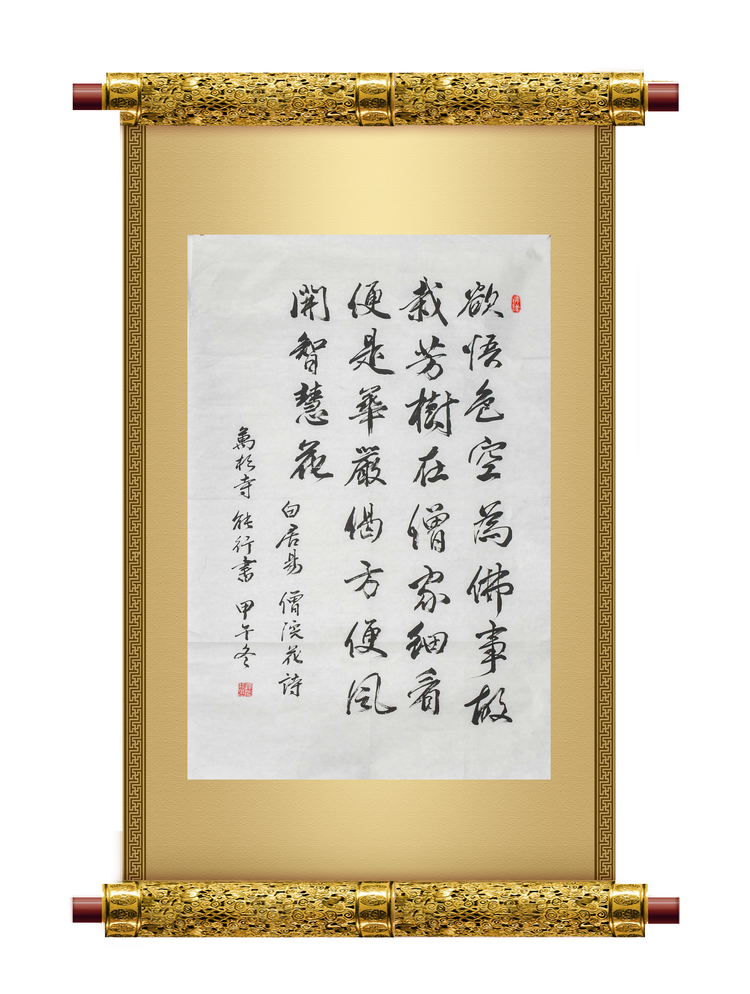 欲悟色空為佛事故
栽芳樹在僧家細看
便是華嚴偈方便風
開智慧花
白居易 僧院花詩
萬松寺 能行書 甲午冬